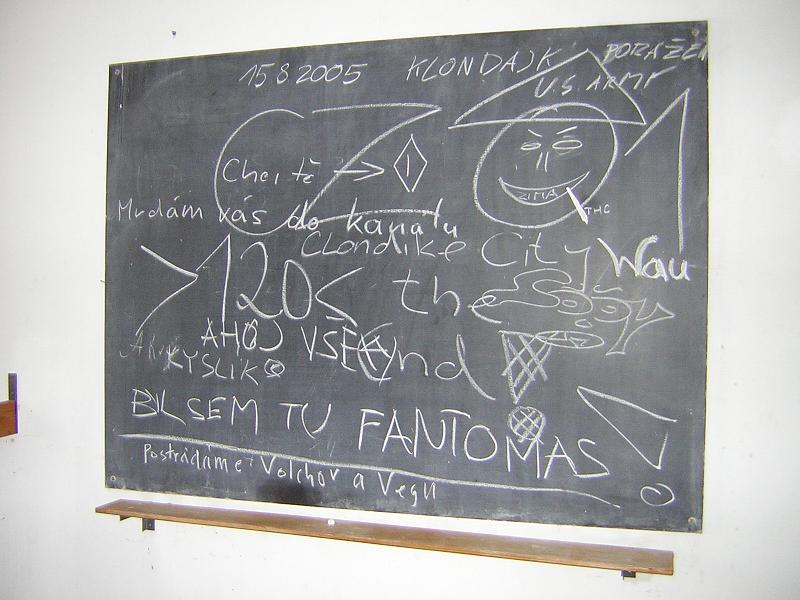 15 8 2005 KLONDAJK PORÁŽEN
U.S. ARMY
OZ 1
Chci tě → 1
ZIMA
THC
Mrdám vás do kanálu
Clondike City Wau
>120< the
AHOJ VŠEM
KYSLÍK
End
BIL SEM TU FANTOMAS
Postrádáme Volchov a Vegu